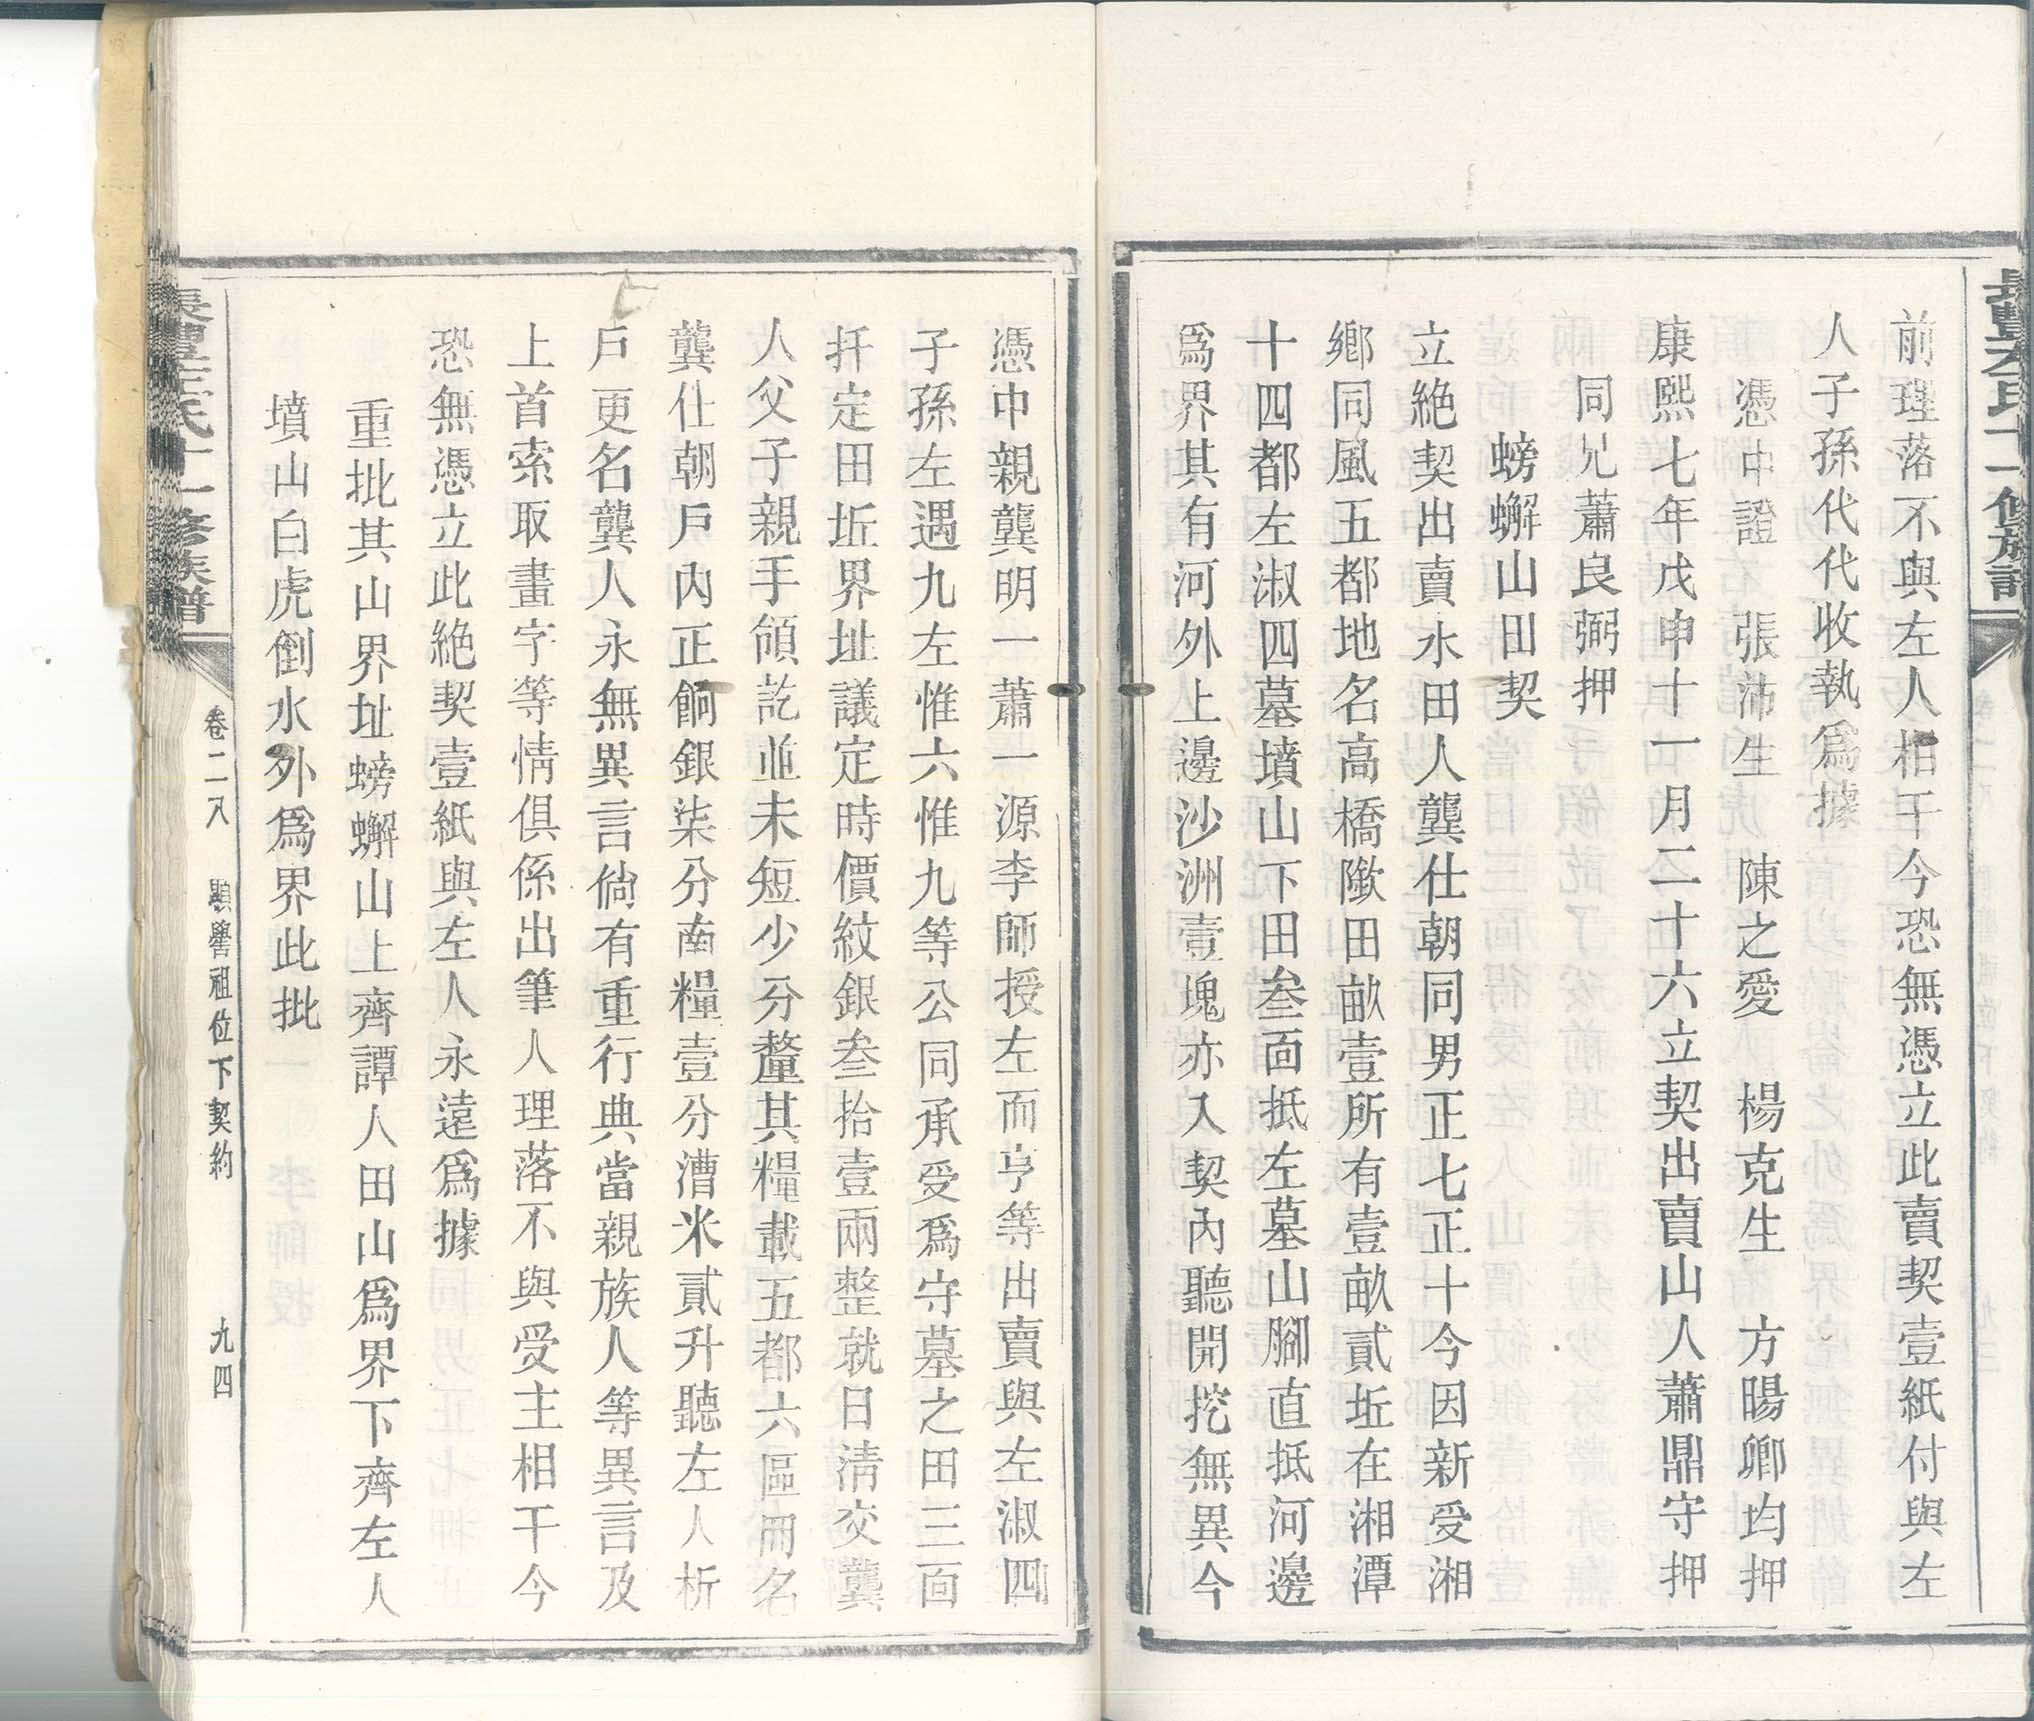 前理落不與左人相干今恐無憑立此賣契壹紙付與左
人子孫代代收執爲據
憑中證　張沛生　陳之愛　楊克生　方暘卿均押
康熙七年戊申十一月二十六立契出賣山人蕭鼎守押
同兄蕭良弼押
螃蠏山田契
立絶契出賣水田人龔仕朝同男正七正十今因新受湘
鄉同風五都地名高橋隞田畝壹所有壹畝貳坵在湘潭
十四都左淑四墓墳山下田叁面抵左墓山腳直抵河邊
爲界其有河外上邊沙洲壹塊亦入契內聽開挖無異今
憑中親龔明一蕭一源李師授左而亨等出賣與左淑四
子孫左遇九左惟六惟九等公同承受爲守墓之田三面
扦定田坵界址議定時價紋銀叁拾壹兩整就日淸交龔
人父子親手領訖並未短少分釐其糧載五都六區冊名
龔仕朝戶內正餉銀柒分南糧壹分漕米貳升聽左人析
戶更名龔人永無異言倘有重行典當親族人等異言及
上首索取畫字等情俱係出筆人理落不與受主相干今
恐無憑立此絕契壹紙與左人永遠爲據
重批其山界址螃蠏山上齊譚人田山爲界下齊左人
墳山白虎倒水外爲界此批
長豐左氏十一修族譜
卷二八　顯謍祖位下契約　九四